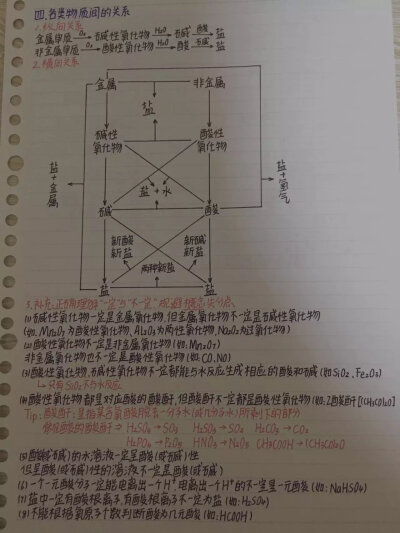 四.各类物质间的关系
1.纵向关系
金属单质 —O₂→ 碱性氧化物 —H₂O→ 碱 —酸→ 盐
非金属单质 —O₂→ 酸性氧化物 —H₂O→ 酸 —碱→ 盐
2.横向关系
金属 非金属
盐
碱性氧化物 酸性氧化物
盐+金属
盐+氢气
盐+水
碱 酸
新酸新盐 新碱新盐
两种新盐
盐 盐
3.补充:正确理解"一定"与"不一定",规避概念失分点
(1)碱性氧化物一定是金属氧化物,但金属氧化物不一定是碱性氧化物
(如:Mn₂O₇为酸性氧化物,Al₂O₃为两性氧化物,Na₂O₂为过氧化物)
(2)酸性氧化物不一定是非金属氧化物(如:Mn₂O₇)
非金属氧化物也不一定是酸性氧化物(如:CO,NO)
(3)酸性氧化物、碱性氧化物不一定都能与水反应生成相应的酸和碱(如SiO₂、Fe₂O₃)
↳只有SiO₂不与水反应
(4)酸性氧化物都是对应酸的酸酐,但酸酐不一定都是酸性氧化物(如:乙酸酐[(CH₃CO)₂O]
Tip:酸酐:是指某含氧酸脱去一分子水(或几分子水),所剩下的部分
H₂SO₄→SO₃ H₂SO₃→SO₂ H₂CO₃→CO₂
H₃PO₄→P₂O₅ HNO₃→N₂O₅ CH₃COOH→(CH₃CO)₂O
(5)酸(或碱)的水溶液一定呈酸(或碱)性
但呈酸(或碱)性的溶液不一定是酸(或碱)
(6)一个一元酸分子一定能电离出一个H⁺,电离出一个H⁺的不一定是一元酸(如:NaHSO₄)
(7)盐中一定有酸根离子,有酸根离子不一定为盐(如:H₂SO₄)
(8)不能根据氢原子个数判断酸为几元酸(如:HCOOH)